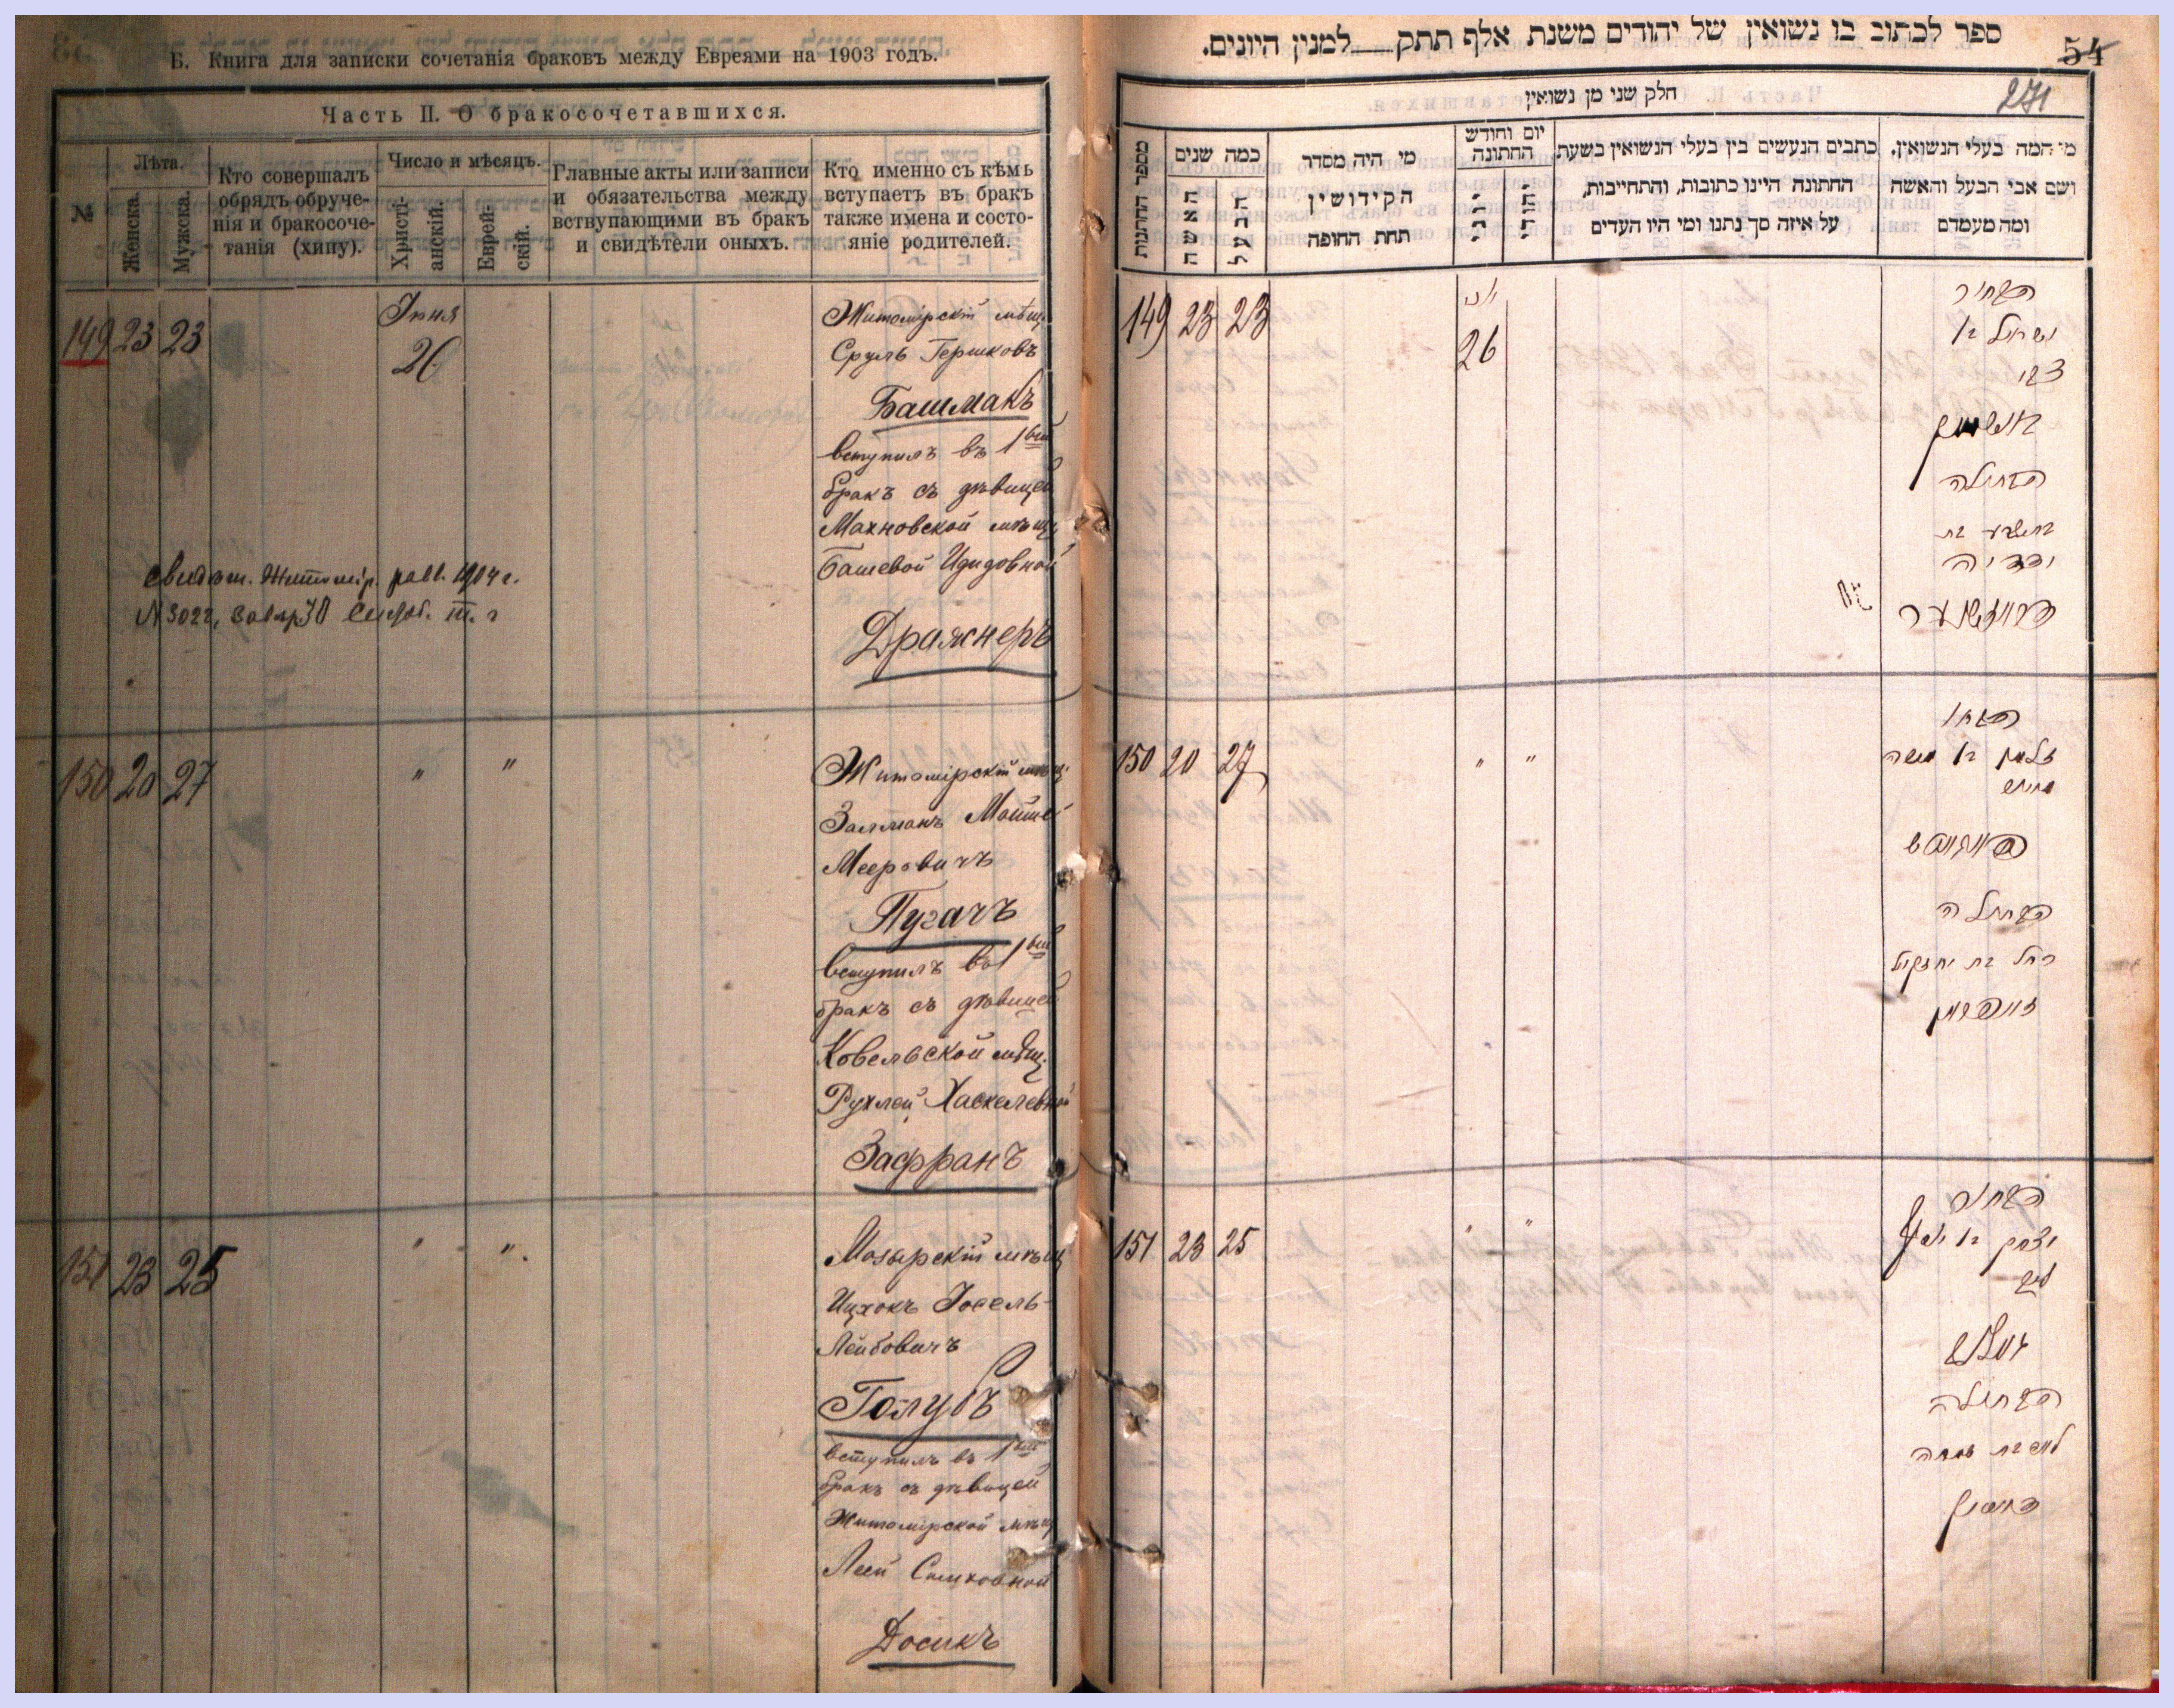 Б. Книга для записки сочетанія браковъ между Евреями на 1903 годъ.
Часть II. О бракосочетавшихся.
№
Лѣта.
Женска.
Мужска.
Кто совершалъ
обрядъ обруче-
нія и бракосоче-
танія (хипу).
Число и мѣсяцъ.
Христі-
анскій.
Еврей-
скій.
Главные акты или записи
и обязательства между
вствупающими въ бракъ
и свидѣтели оныхъ.
Кто именно съ кѣмъ
вступаетъ въ бракъ
также имена и состо-
яніе родителей.
149 23 23
Іюня
26
Житомірскій мѣщ.
Сруль Гершковъ
Башмакъ
вступилъ въ 1вый
бракъ съ дѣвицей
Махновской мѣщ.
Башевой Идидовной
Дражнеръ
свидѣт. Житомір. равв. 1904 г.
N 3022,
150 20 27 " "
Житомірскій мѣщ.
Залманъ Мойше
Мееровичъ
Пугачъ
вступилъ въ 1вый
бракъ съ дѣвицей
Ковельской мѣщ.
Рухлей Хаскелевной
Зафранъ
151 23 25 " "
Мозырскій мѣщ
Ицхокъ Іосель-
Лейбовичъ
Голубъ
вступилъ въ 1вый
бракъ съ дѣвицей
Житомірской мѣщ
Леей Симховной
Досикъ
ספר לכתוב בו נשואין של יהודים משנת אלף תתק למנין היונים.
54
271
חלק שני מן נשואין
מספר החתונות
כמה שנים
האשה
הבעל
מי היה מסדר
הקידושין
תחת החופה
יום וחודש
החתונה
יווני
יהודי
כתבים הנעשים בין בעלי הנשואין בשעת
החתונה היינו כתובות, והתחייבות,
על איזה סך נתנו ומי היו העדים
מי המה בעלי הנשואין,
ושם אבי הבעל והאשה
ומה מעמדם
149 23 23
יוני
26
הבחור
ישראל בן
צבי
באשמאק
הבתולה
בתשבע בת
ידידיה
דראזשנער
150 20 27 " "
הבחור
זלמן בן משה
מאיר
פוגאטש
הבתולה
רחל בת יחזקאל
זאפראן
151 23 25 " "
הבחור
יצחק בן יוסף
ליב
גאלוב
הבתולה
לאה בת שמחה
דאסיק